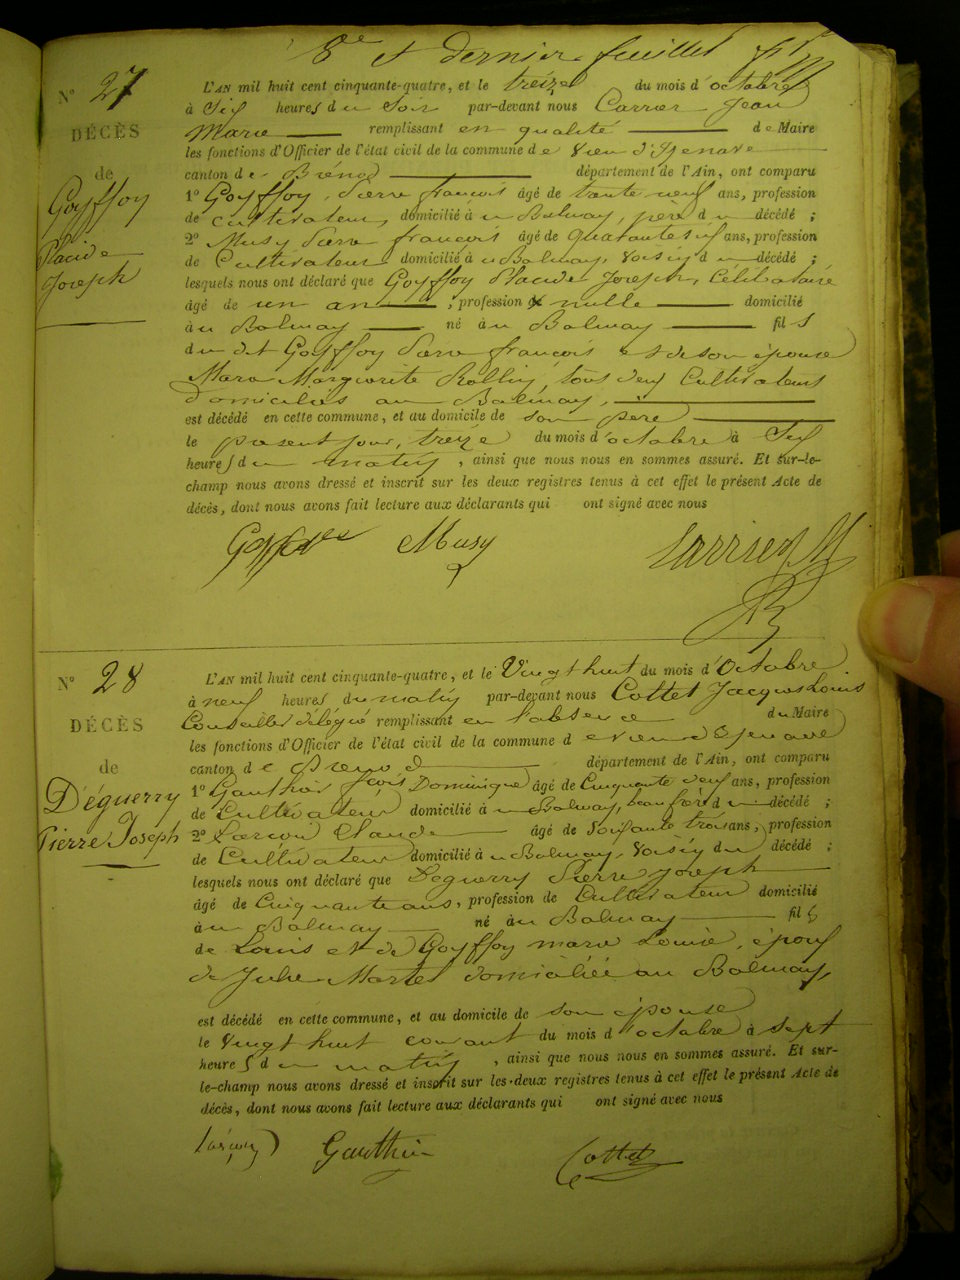 8e et dernier feuillet
N° 27
DÉCÈS
de
Goyffoy
Placide
Joseph
L'AN mil huit cent cinquante-quatre, et le treize du mois d'octobre
à Six heures du Soir par-devant nous Carrier Jean
Marie remplissant en qualité de Maire
les fonctions d'Officier de l'état civil de la commune de Vieu d'Izenave
canton de Brénod département de l'Ain, ont comparu
1° Goyffoy Pierre françois âgé de trente neuf ans, profession
de cultivateur, domicilié à u Balmay, père du décédé ;
2° Musy Pierre françois âgé de quarante six ans, profession
de Cultivateur domicilié à u Balmay, Voisin du décédé ;
lesquels nous ont déclaré que Goyffoy Placide Joseph, Célibataire
âgé de un an , profession de nulle domicilié
à u Balmay né à u Balmay fils
du dit Goyffoy Pierre françois et de son épouse
Marie Marguerite Rollin, tous deux Cultivateurs
domiciliés au Balmay,
est décédé en cette commune, et au domicile de son père
le présent jour, treize du mois d'octobre à Six
heures du matin , ainsi que nous nous en sommes assuré. Et sur-le-
champ nous avons dressé et inscrit sur les deux registres tenus à cet effet le présent Acte de
décès, dont nous avons fait lecture aux déclarants qui ont signé avec nous
Musy Carrier
N° 28
DÉCÈS
de
Déguerry
Pierre Joseph
L'AN mil huit cent cinquante-quatre, et le Vingt huit du mois d'Octobre
à neuf heures du matin par-devant nous Cottet Jacques Louis
Conseiller délégué remplissant en l'absence du Maire
les fonctions d'Officier de l'état civil de la commune de Vieu d'Izenave
canton de Brenod département de l'Ain, ont comparu
1° Gauthier fçois Dominique âgé de Cinquante neuf ans, profession
de Cultivateur domicilié à u Balmay, beau frère du décédé ;
2° Claude âgé de Soixante trois ans, profession
de Cultivateur domicilié à u Balmay, Voisin du décédé ;
lesquels nous ont déclaré que Deguerry Pierre Joseph
âgé de Cinquante ans, profession de Cultivateur domicilié
à u Balmay né à u Balmay fils
de Louis et de Goyffoy marie Louise, époux
de Julie Martel domiciliée au Balmay,
est décédé en cette commune, et au domicile de son épouse
le Vingt huit courant du mois d'octobre à sept
heures du matin , ainsi que nous nous en sommes assuré. Et sur-
le-champ nous avons dressé et inscrit sur les deux registres tenus à cet effet le présent Acte de
décès, dont nous avons fait lecture aux déclarants qui ont signé avec nous
Gauthier Cottet